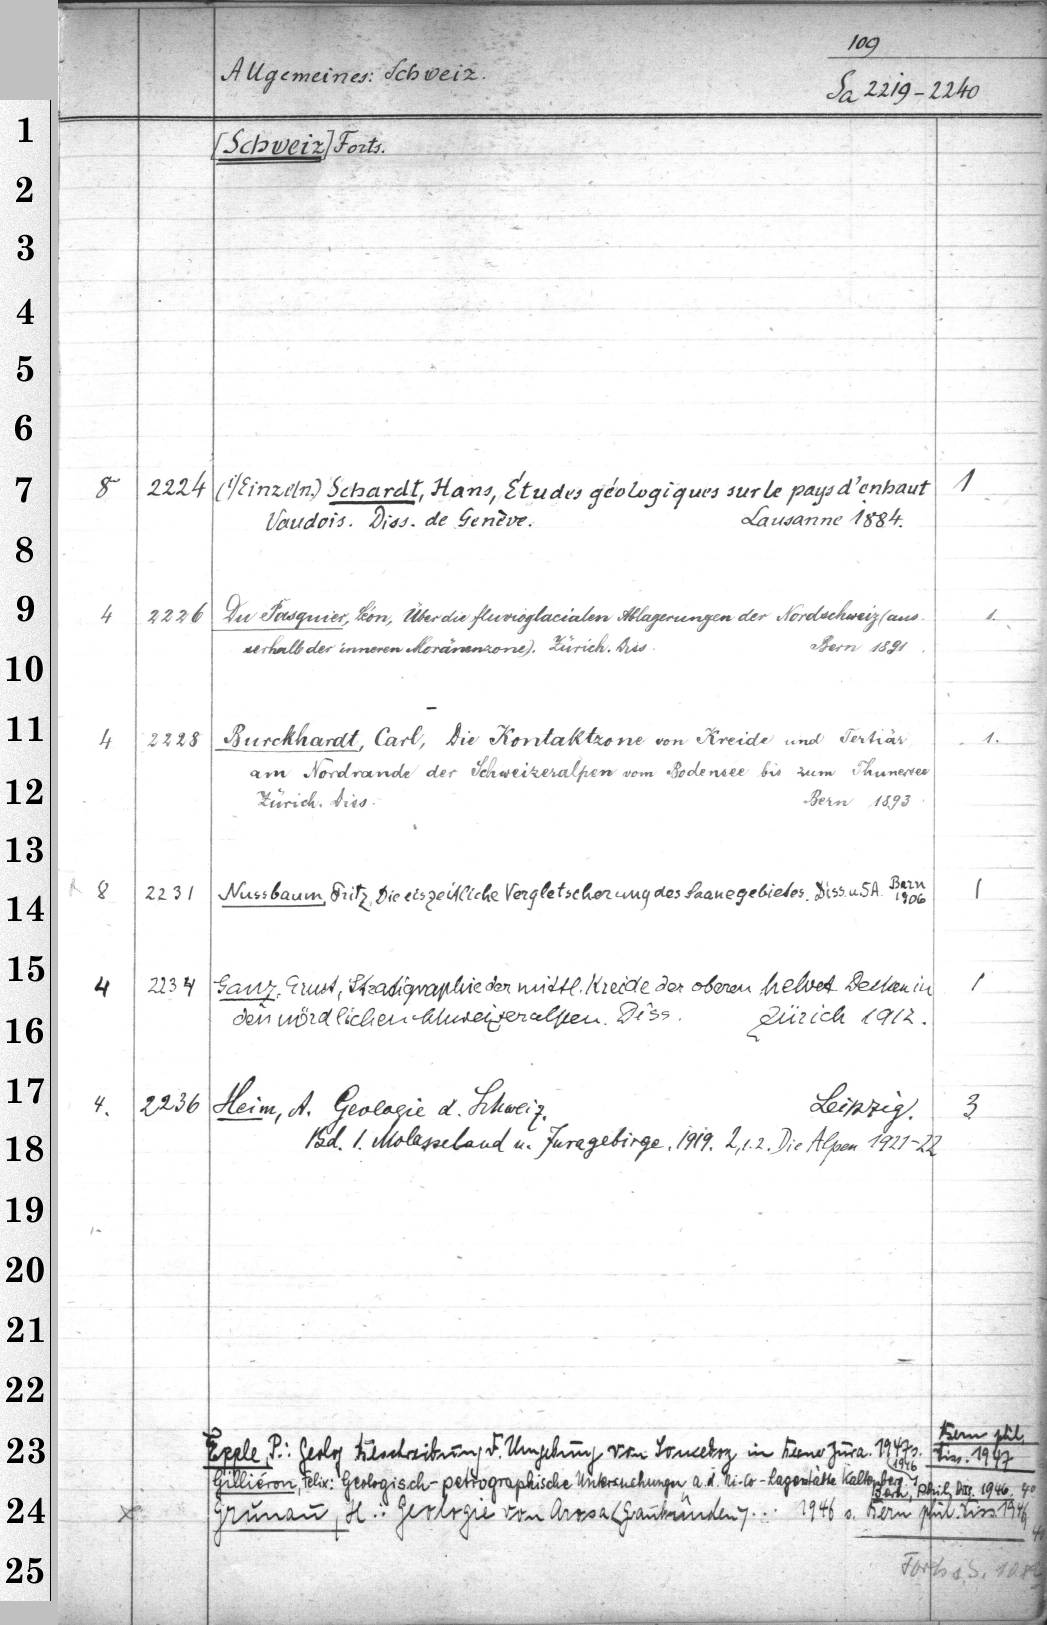 109
Allgemeines: Schweiz.
Sa 2219-2240
1
[Schweiz] Forts.
2
3
4
5
6
7
8 2224 (i/Einzeln.) Schardt, Hans, Études géologiques sur le pays d'enhaut 1
Vaudois. Diss. de Genève. Lausanne 1884.
8
9
4 2226 Du Pasquier, Léon, Über die fluvioglacialen Ablagerungen der Nordschweiz (aus- 1.
serhalb der inneren Moränenzone). Zürich. Diss. Bern 1891.
10
11
4 2228 Burckhardt, Carl, Die Kontaktzone von Kreide und Tertiär 1.
am Nordrande der Schweizeralpen vom Bodensee bis zum Thunersee
12
Zürich. Diss. Bern 1893.
13
14
8 2231 Nussbaum, Fritz, Die eiszeitliche Vergletscherung des Saanegebietes. Diss. u. SA. Bern 1906 1
15
4 2234 Ganz, Ernst, Stratigraphie der mittl. Kreide der oberen helvet. Decken in 1
den nördlichen Schweizeralpen. Diss. Zürich 1912.
16
17
4. 2236 Heim, A. Geologie d. Schweiz. Leipzig. 3
Bd. 1. Molasseland u. Juragebirge. 1919. 2,1.2. Die Alpen 1921-22
18
19
20
21
22
23
Epple, P.: Geolog Beschreibung d. Umgebung von Sonceboz in Berner Jura. 1947 s. Bern phil. Diss. 1947
Gilliéron, Felix: Geologisch-petrographische Untersuchungen a. d. Ni-Co-Lagerstätte Kaltenberg 1946 Bern, Phil. Diss. 1946. 40
24
Grunau, H.: Geologie von Arosa (Graubünden) . . 1946 s. Bern phil. Diss 1946
25
Forts. S.